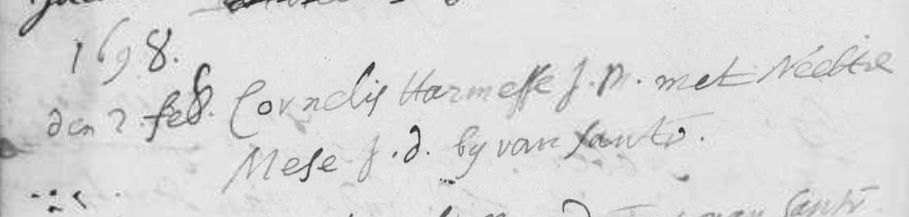 1698.
den 2. feb. Cornelis Harmesse J.M. met Neeltie
Mese J.d. by van Santē.